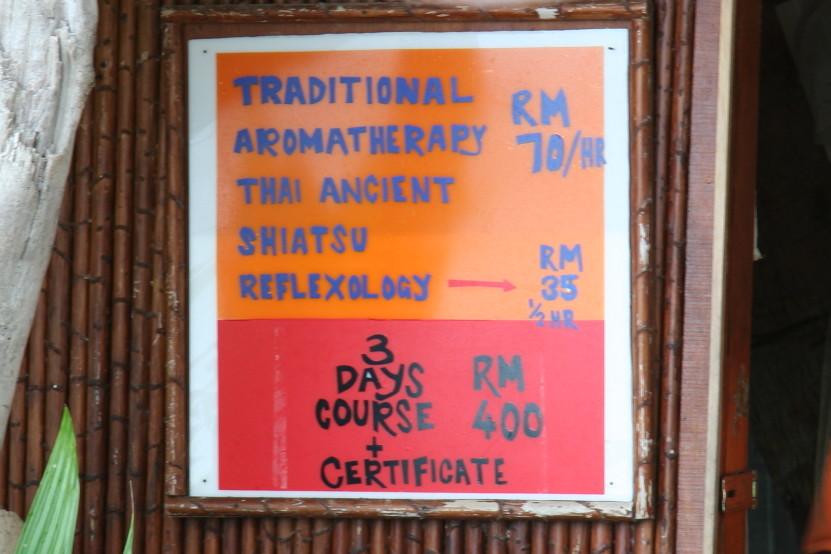 TRADITIONAL
AROMATHERAPY
THAI ANCIENT
SHIATSU
REFLEXOLOGY
RM
70/HR
RM
35
½ HR
3
DAYS
COURSE
+
CERTIFICATE
RM
400